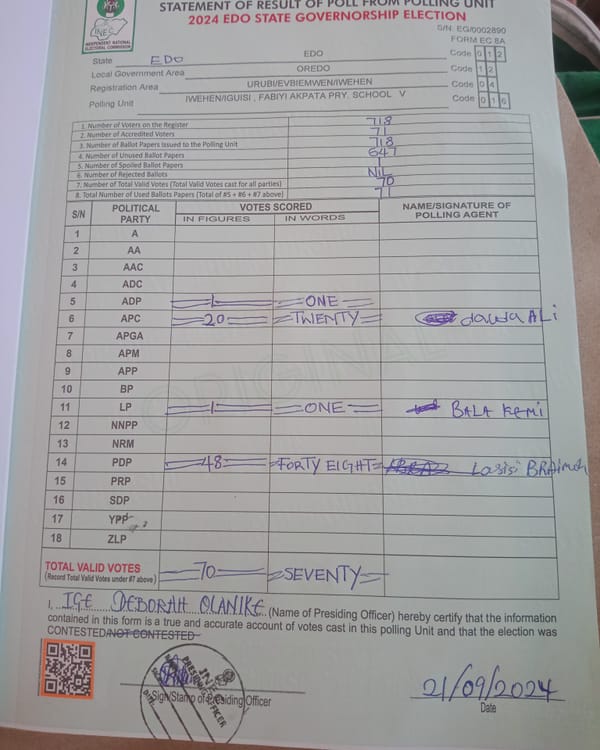 STATEMENT OF RESULT OF POLL FROM POLLING UNIT
2024 EDO STATE GOVERNORSHIP ELECTION
INEC
INDEPENDENT NATIONAL ELECTORAL COMMISSION
S/N: EG/0002890
FORM EC 8A
State EDO EDO Code 0 1 2
Local Government Area OREDO Code 1 2
Registration Area URUBI/EVBIEMWEN/IWEHEN Code 0 4
Polling Unit IWEHEN/IGUISI , FABIYI AKPATA PRY. SCHOOL V Code 0 1 6
1. Number of Voters on the Register 718
2. Number of Accredited Voters 71
3. Number of Ballot Papers Issued to the Polling Unit 718
4. Number of Unused Ballot Papers 647
5. Number of Spoiled Ballot Papers 1
6. Number of Rejected Ballots NIL
7. Number of Total Valid Votes (Total Valid Votes cast for all parties) 70
8. Total Number of Used Ballots Papers (Total of #5 + #6 + #7 above) 71
S/N POLITICAL PARTY VOTES SCORED NAME/SIGNATURE OF POLLING AGENT
IN FIGURES IN WORDS
1 A
2 AA
3 AAC
4 ADC
5 ADP 1 ONE
6 APC 20 TWENTY dauda ALi
7 APGA
8 APM
9 APP
10 BP
11 LP 1 ONE BALA Kemi
12 NNPP
13 NRM
14 PDP 48 FORTY EIGHT Lasisi BRAimoh
15 PRP
16 SDP
17 YPP
18 ZLP
ORIGINAL
TOTAL VALID VOTES 70 SEVENTY
(Record Total Valid Votes under #7 above)
I, IGE DEBORAH OLANIKE (Name of Presiding Officer) hereby certify that the information
contained in this form is a true and accurate account of votes cast in this polling Unit and that the election was
CONTESTED/NOT CONTESTED
INEC
PRESIDING OFFICER
DATE
Sign/Stamp of Presiding Officer
21/09/2024
Date